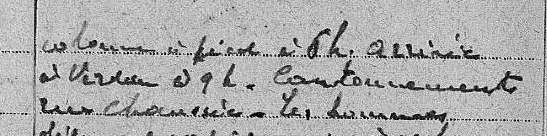 colonne à pied à 6h. arrivée
à Verdun à 9h. Cantonnements
rue Chaussée - Les hommes